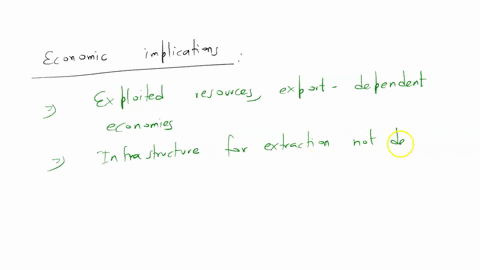 Economic implications :
⇒ Exploited resources, export - dependent
economies
⇒ Infrastructure for extraction not de